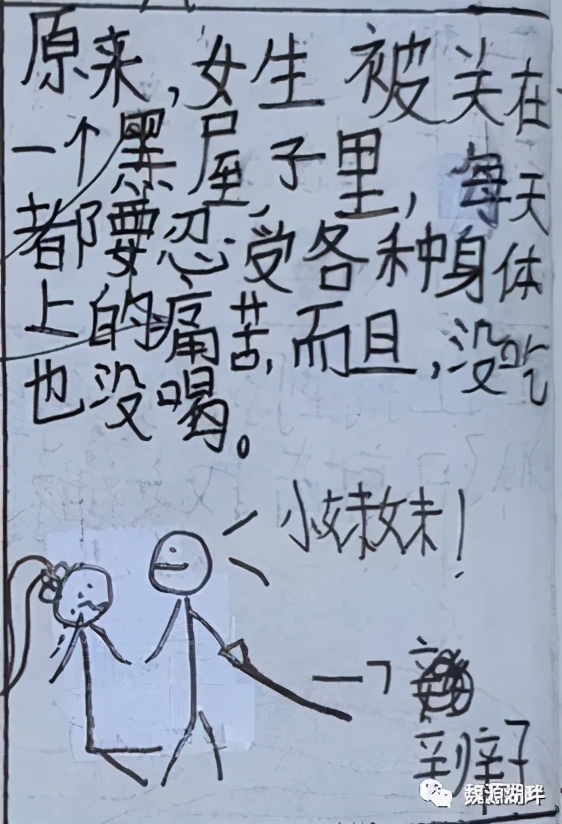 原来,女生被关在
一个黑屋子里,每天
都要忍受各种身体
上的痛苦,而且,没吃
也没喝。
小妹妹!
魏源湖畔